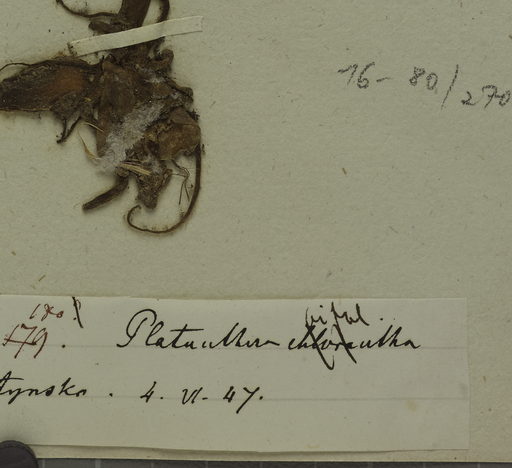 16 - 80/270
180
179. Platanthera bifol. chlorantha
tynsko. 4. VI. 47.